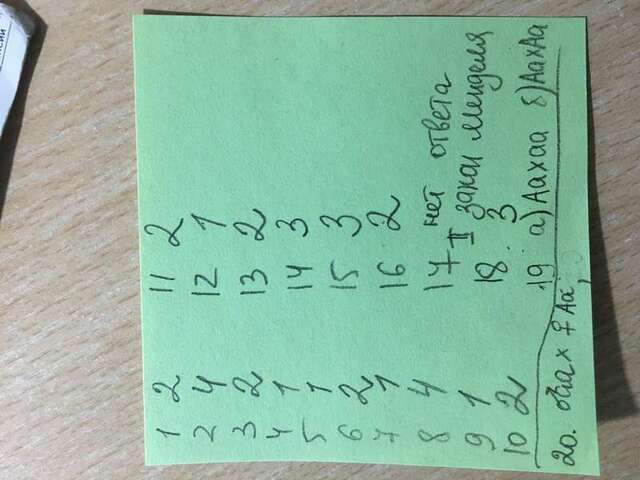 1 2
2 4
3 2
4 1
5 1
6 2
7 1
8 4
9 1
10 2
11 2
12 1
13 2
14 3
15 3
16 2
17 нет ответа
II закон Менделя
18. 3
19 а) Аахаа б) АахАа
20. х ♀ Аа;